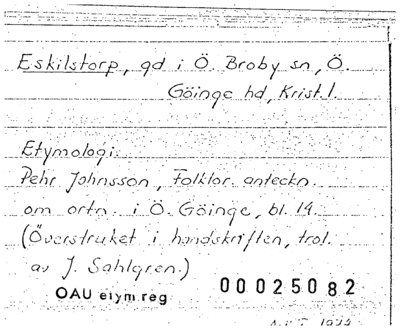 Eskilstorp, gd i Ö. Broby sn, Ö.
Göinge hd, Krist.l.
Etymologi:
Pehr Johnsson, Folklor. anteckn.
om ortn. i Ö. Göinge, bl. 14.
(Överstruket i handskriften, trol.
av J. Sahlgren.)
OAU etym.reg. 00025082